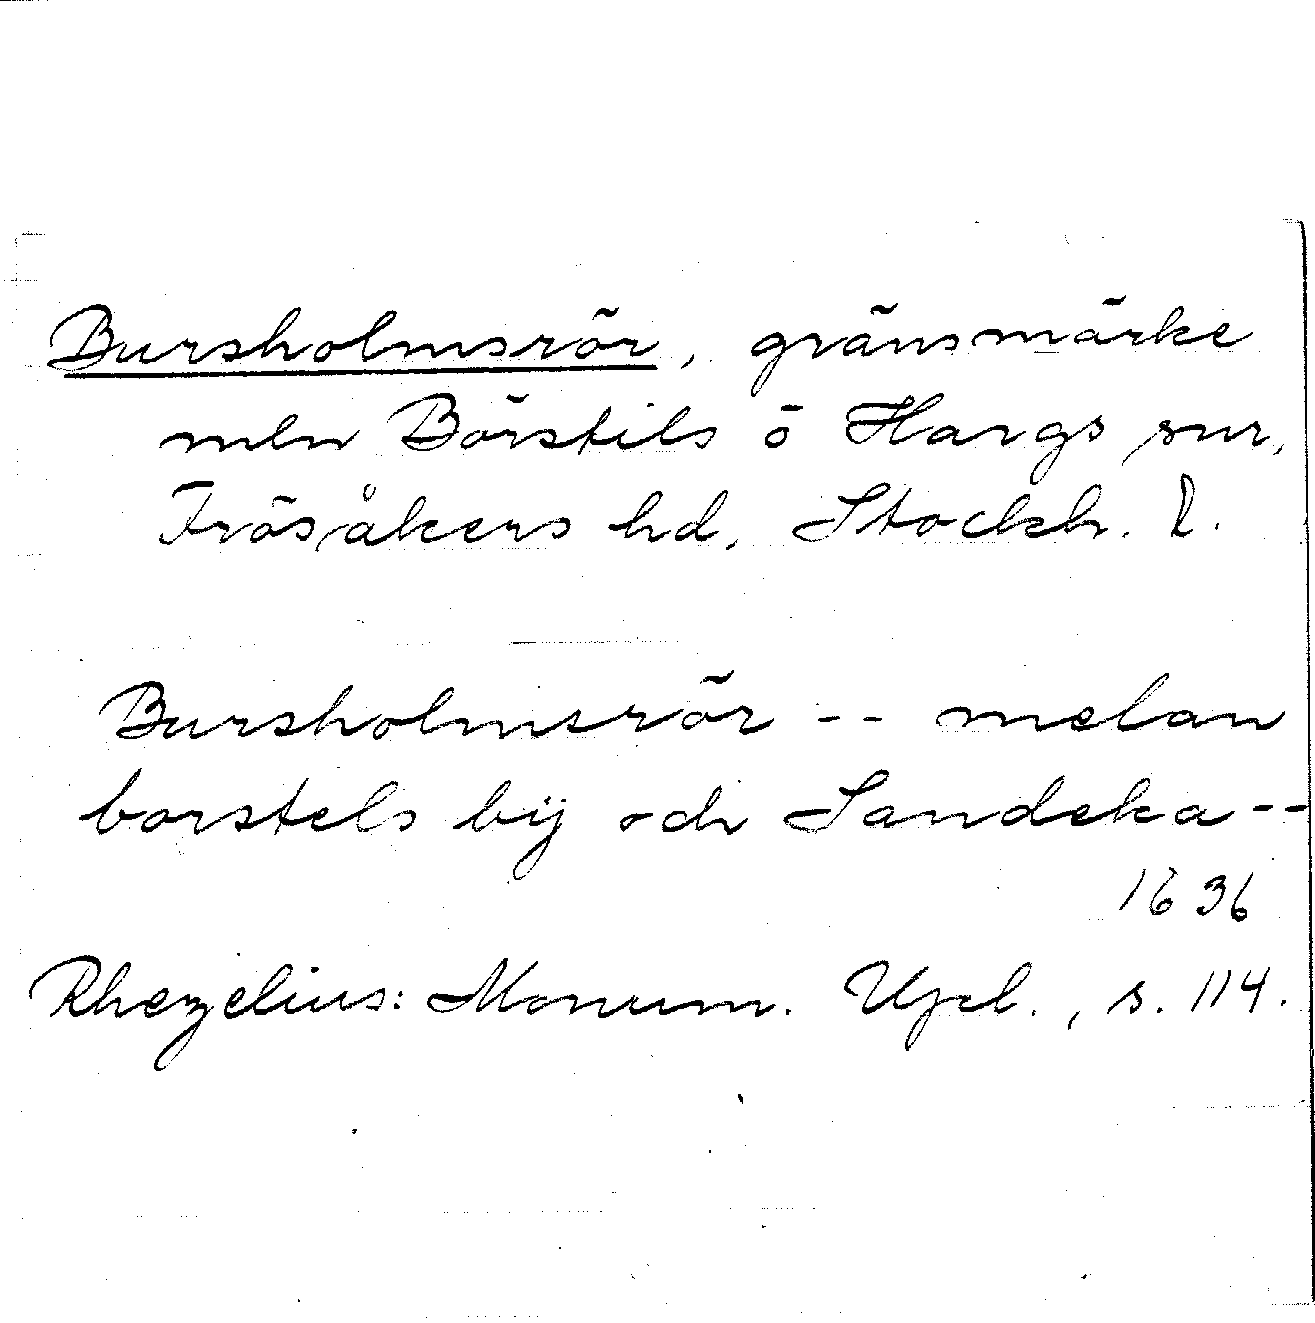 Bursholmsrör, gränsmärke
mln Börstils o Hargs snr,
Frösåkers hd, Stockh. l.
Bursholmsrör -- melan
borstels bÿ och Sandeka --
1636
Rhezelius: Monum. Upl., s. 114.